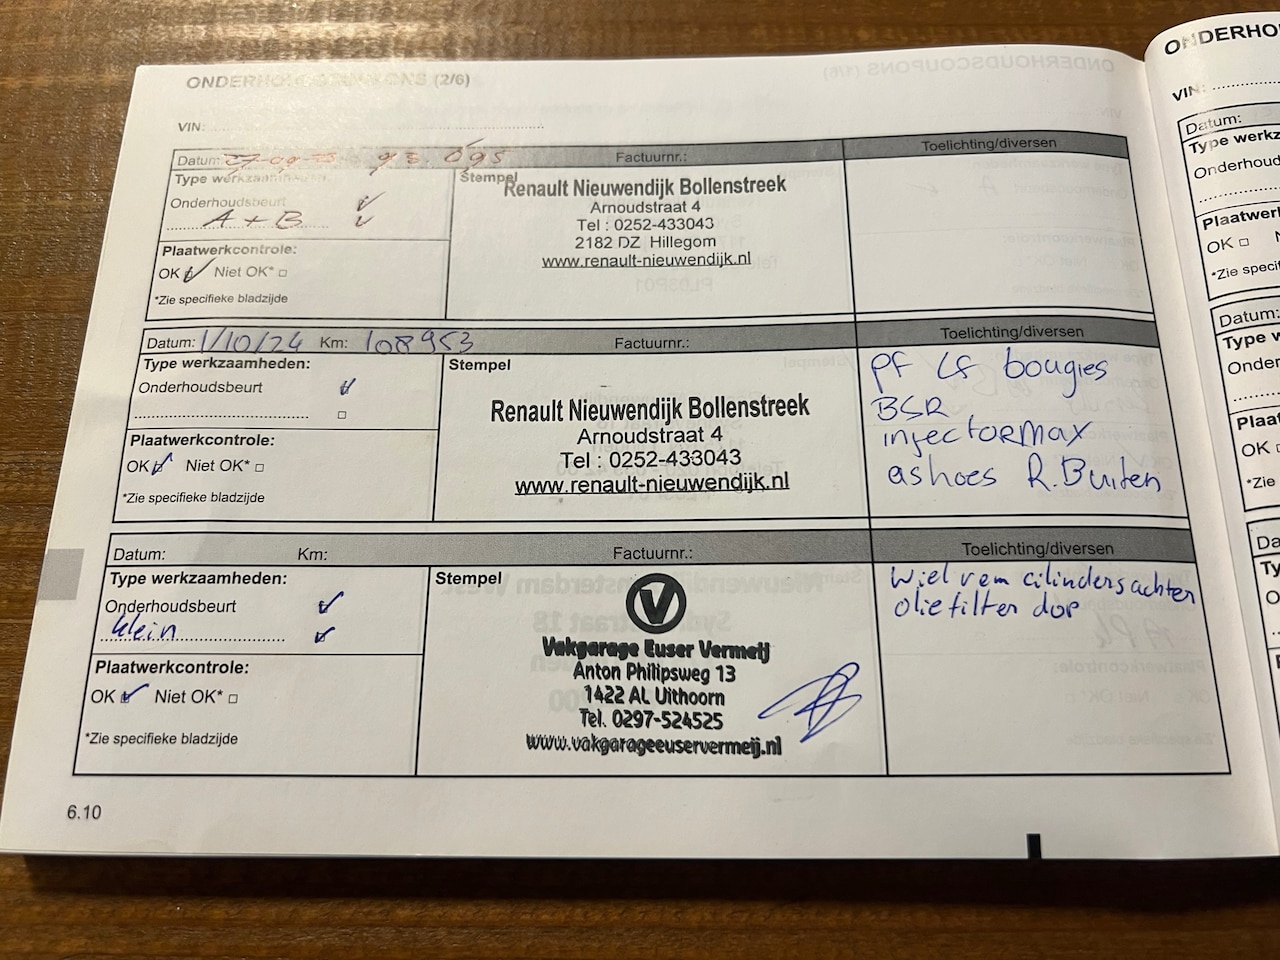 ONDERHOUDSCOUPONS (2/6)
VIN:
Datum: Factuurnr.: Toelichting/diversen
93.095
Type werkzaamheden:
Stempel
Onderhoudsbeurt
A + B
Plaatwerkcontrole:
OK Niet OK*
*Zie specifieke bladzijde
Renault Nieuwendijk Bollenstreek
Arnoudstraat 4
Tel : 0252-433043
2182 DZ Hillegom
www.renault-nieuwendijk.nl
Datum: 1/10/24 Km: 108953 Factuurnr.: Toelichting/diversen
Type werkzaamheden:
Stempel
Onderhoudsbeurt
Plaatwerkcontrole:
OK Niet OK*
*Zie specifieke bladzijde
Renault Nieuwendijk Bollenstreek
Arnoudstraat 4
Tel : 0252-433043
www.renault-nieuwendijk.nl
PF LF bougies
BSR
injectormax
ashoes R.Buiten
Datum: Km: Factuurnr.: Toelichting/diversen
Type werkzaamheden:
Stempel
Onderhoudsbeurt
klein
Plaatwerkcontrole:
OK Niet OK*
*Zie specifieke bladzijde
V
Vakgarage Euser Vermeij
Anton Philipsweg 13
1422 AL Uithoorn
Tel. 0297-524525
www.vakgarageeuservermeij.nl
Wiel rem cilinders achter
oliefilter dop
6.10
VIN:
Datum:
Plaatwerk
OK
*Zie specif
Datum:
Type w
Onder
Plaa
OK
*Zie
Da
Ty
O